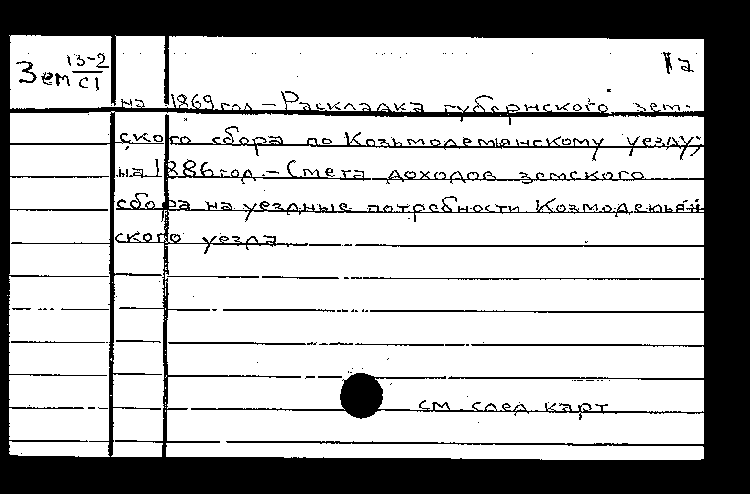 Зем 13-2
С1
1а
на 1869 год – Раскладка губернского зем-
ского сбора по Козьмодемянскому уезду;
на 1886 год – Смета доходов земского
сбора на уездные потребности Козмодемьян
ского уезда.
см. след. карт